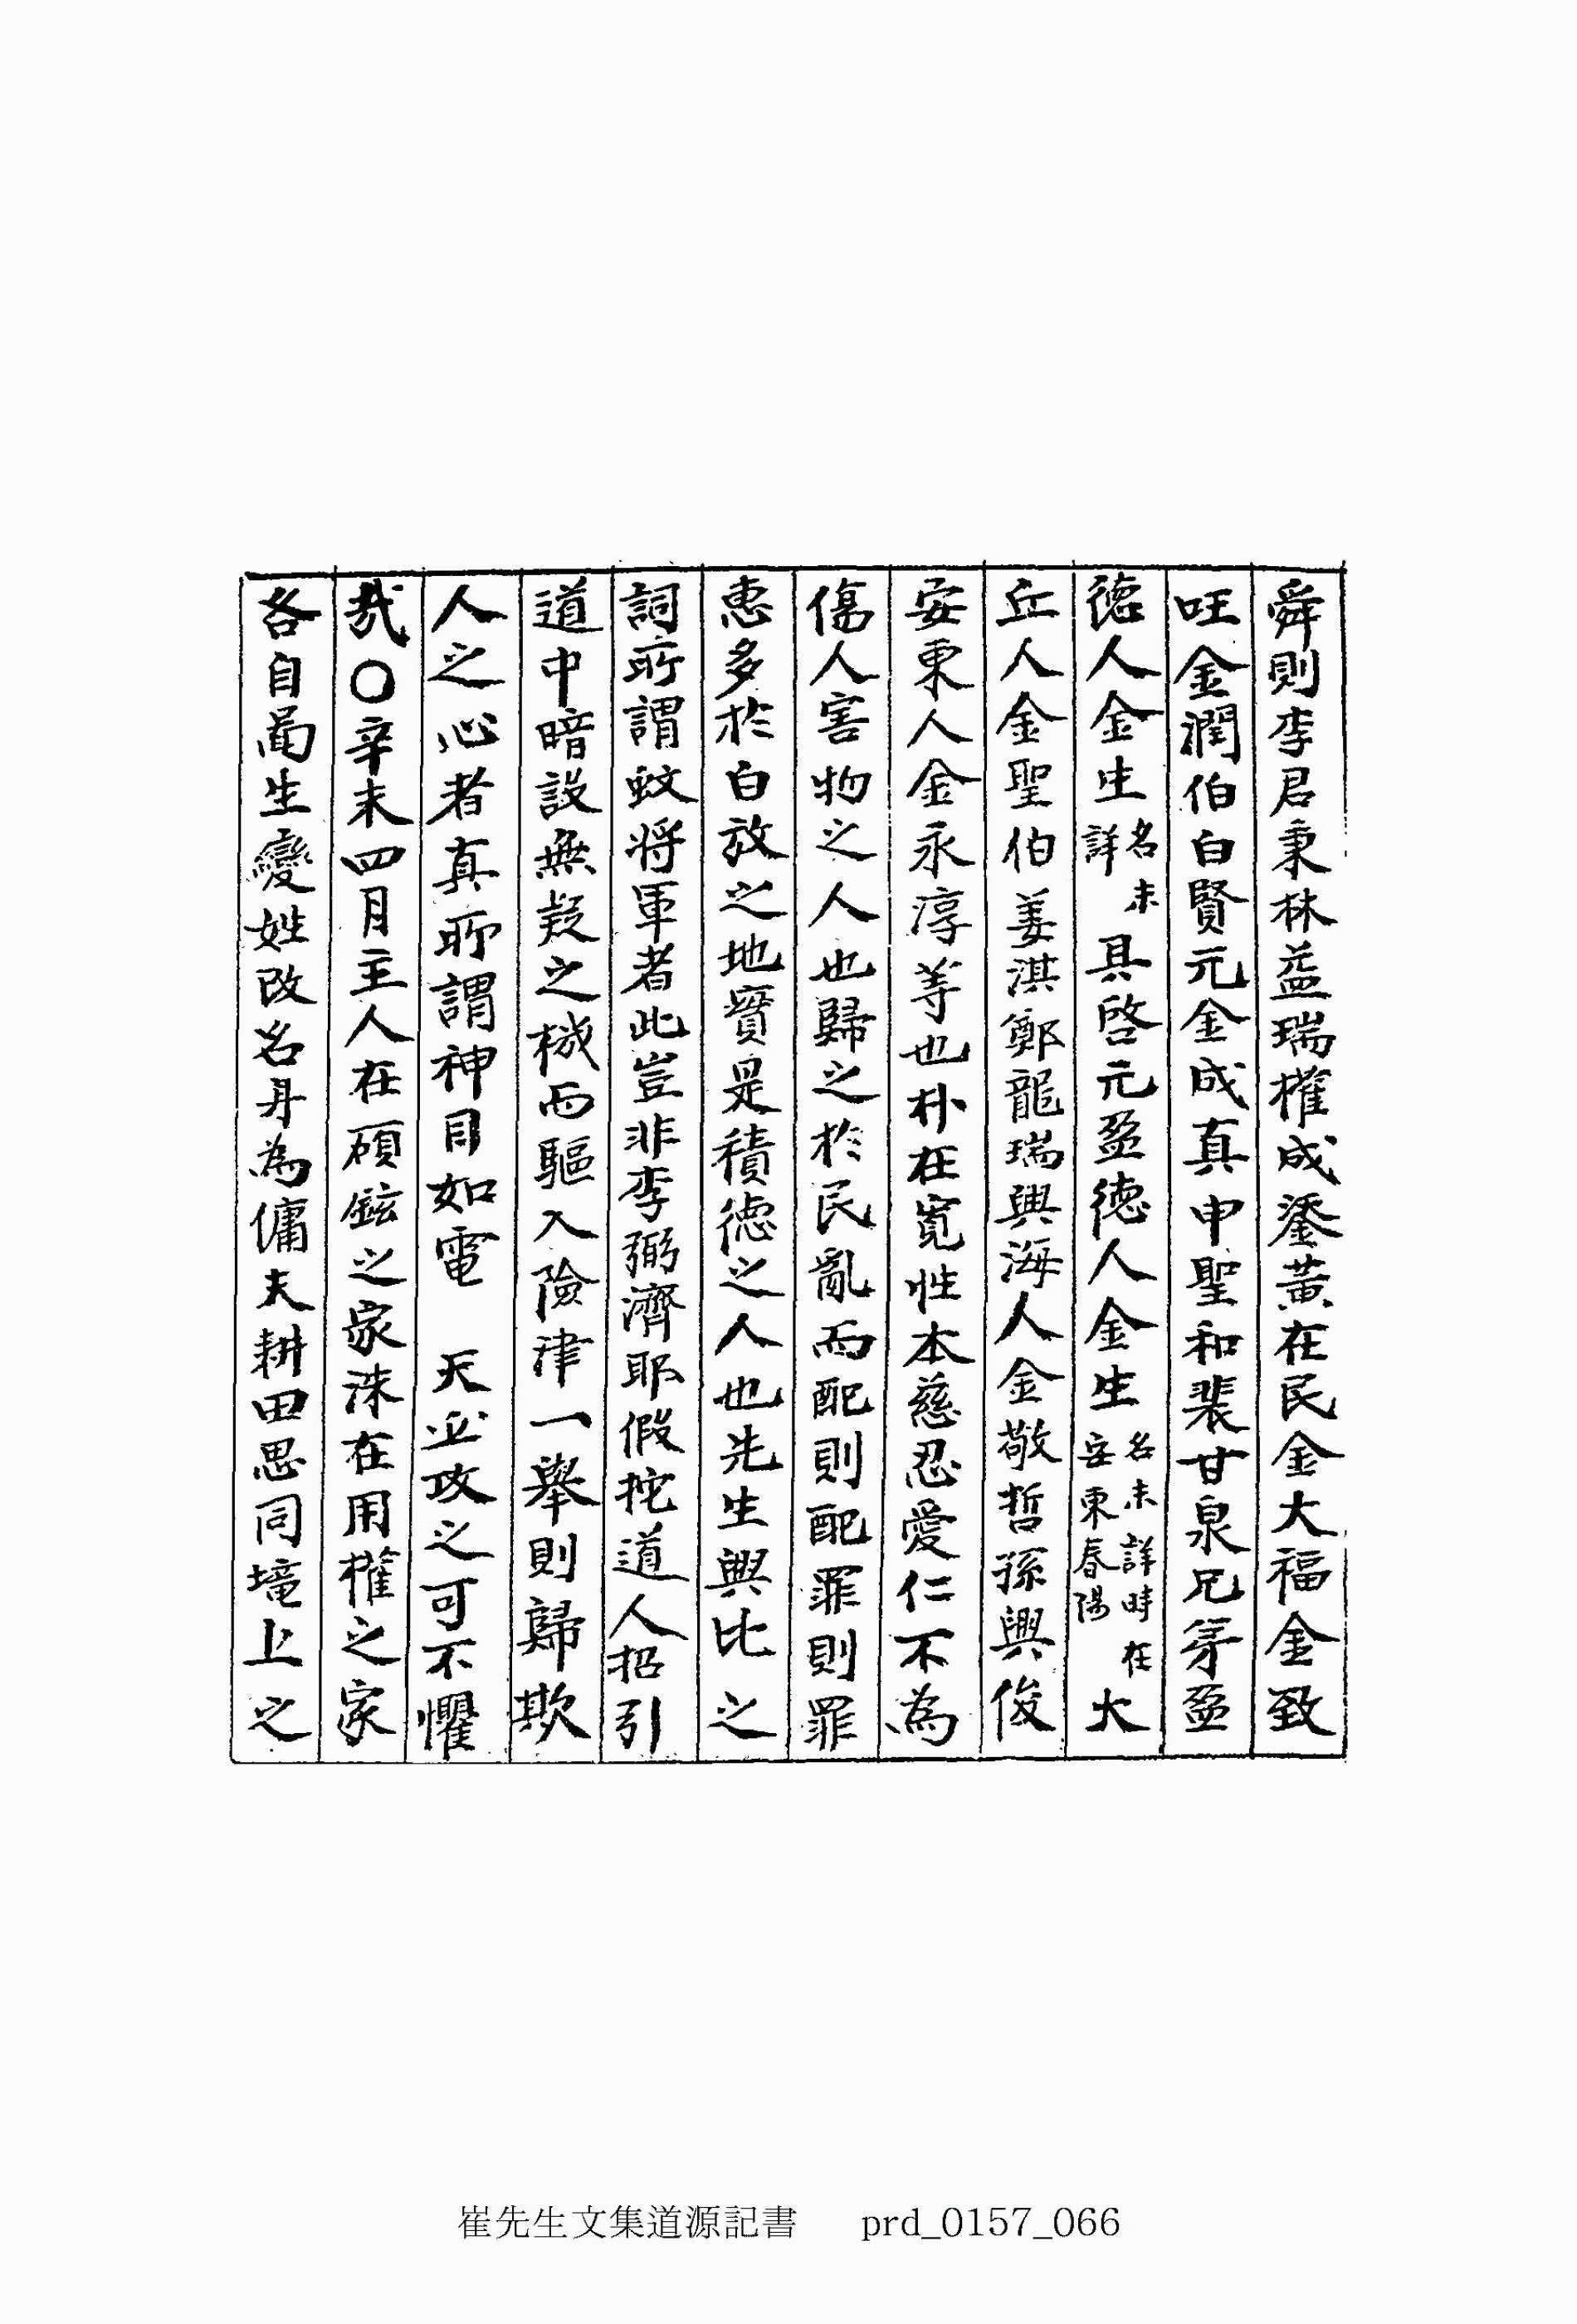 舜則李君秉林益瑞權成鎏黃在民金大福金致
旺金潤伯白賢元金成真申聖和裴甘泉兄弟盈
德人金生名未詳具啓元盈德人金生名未詳時在安東春陽大
丘人金聖伯姜淇鄭龍瑞興海人金敬哲孫興俊
安東人金永淳等也朴在寬性本慈忍愛仁不為
傷人害物之人也歸之於民亂而配則配罪則罪
惠多於白放之地實是積德之人也先生與比之
詞所謂蚊将軍者此豈非李弼濟耶假挓道人招引
道中暗設無疑之機而驅入險津一舉則歸欺
人之心者真所謂神目如電　天必攻之可不懼
哉〇辛未四月主人在碩鉉之家洙在用權之家
各自啚生變姓改名身為傭夫耕田思同壠上之
崔先生文集道源記書　prd_0157_066